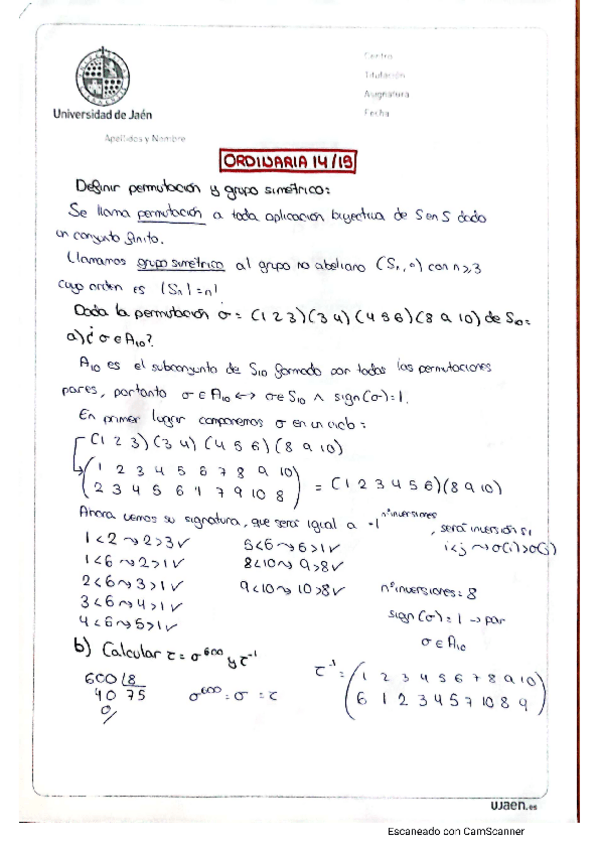 Centro
Titulación
Asignatura
Fecha
Universidad de Jaén
Apellidos y Nombre
ORDINARIA 14/15
Definir permutación y grupo simétrico:
Se llama permutación a toda aplicación biyectiva de S en S dado
un conjunto finito.
Llamamos grupo simétrico al grupo no abeliano (Sn, ∘) con n≥3
cuyo orden es |Sn| = n!
Dada la permutación σ = (1 2 3)(3 4)(4 5 6)(8 9 10) de S10:
a) ¿σ ∈ A10?
A10 es el subconjunto de S10 formado por todas las permutaciones
pares, por tanto σ ∈ A10 ↔ σ ∈ S10 ∧ sign(σ)=1.
En primer lugar componemos σ en un ciclo:
(1 2 3)(3 4)(4 5 6)(8 9 10)
(1 2 3 4 5 6 7 8 9 10)
(2 3 4 5 6 1 7 9 10 8) = (1 2 3 4 5 6)(8 9 10)
Ahora vemos su signatura, que será igual a -1^nº inversiones, será inversión si
i<j ⤳ σ(i)>σ(j)
1<2 ⤳ 2>3 ✓ 5<6 ⤳ 6>1 ✓
1<6 ⤳ 2>1 ✓ 8<10 ⤳ 9>8 ✓
2<6 ⤳ 3>1 ✓ 9<10 ⤳ 10>8 ✓ nº inversiones = 8
3<6 ⤳ 4>1 ✓ sign(σ) = 1 → par
4<6 ⤳ 5>1 ✓ σ ∈ A10
b) Calcular τ = σ^600 y τ^-1
600 | 8
40 75 σ^600 = σ = τ
0
τ^-1 = (1 2 3 4 5 6 7 8 9 10)
(6 1 2 3 4 5 7 10 8 9)
ujaen.es
Escaneado con CamScanner